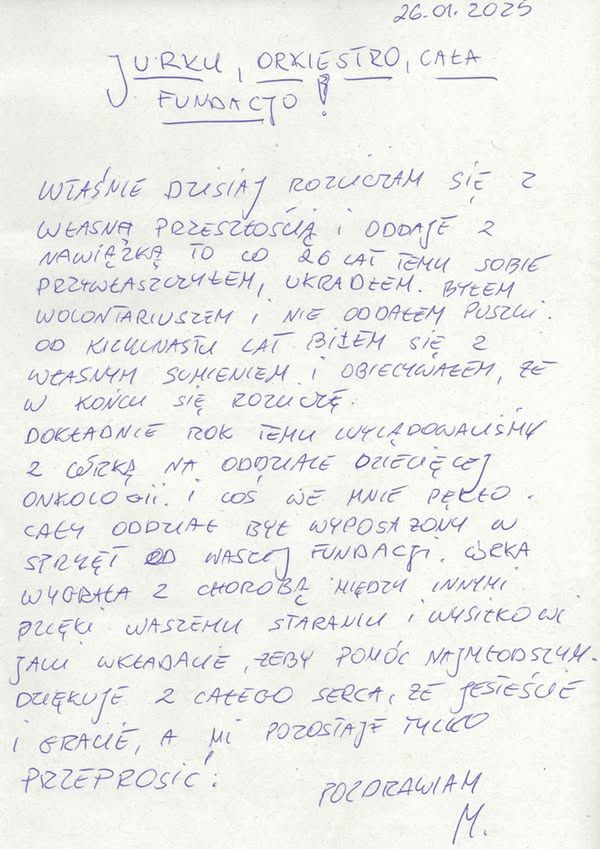 26.01.2025
JURKU, ORKIESTRO, CAŁA
FUNDACJO!
WŁAŚNIE DZISIAJ ROZLICZAM SIĘ Z
WŁASNĄ PRZESZŁOŚCIĄ I ODDAJĘ Z
NAWIĄZKĄ TO CO 26 LAT TEMU SOBIE
PRZYWŁASZCZYŁEM, UKRADŁEM. BYŁEM
WOLONTARIUSZEM I NIE ODDAŁEM PUSZKI.
OD KILKUNASTU LAT BIŁEM SIĘ Z
WŁASNYM SUMIENIEM I OBIECYWAŁEM, ŻE
W KOŃCU SIĘ ROZLICZĘ.
DOKŁADNIE ROK TEMU WYLĄDOWALIŚMY
Z CÓRKĄ NA ODDZIALE DZIECIĘCEJ
ONKOLOGII. I COŚ WE MNIE PĘKŁO.
CAŁY ODDZIAŁ BYŁ WYPOSAŻONY W
SPRZĘT OD WASZEJ FUNDACJI. CÓRKA
WYGRAŁA Z CHOROBĄ MIĘDZY INNYMI
DZIĘKI WASZEMU STARANIU I WYSIŁKOWI
JAKI WKŁADACIE, ŻEBY POMÓC NAJMŁODSZYM.
DZIĘKUJĘ Z CAŁEGO SERCA, ŻE JESTEŚCIE
I GRACIE, A MI POZOSTAJE TYLKO
PRZEPROSIĆ!
POZDRAWIAM
M.